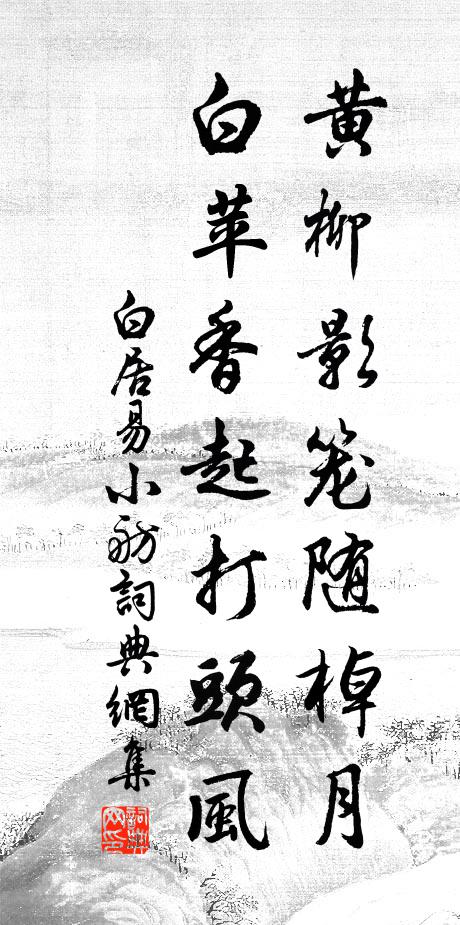 黃柳影笼随棹月
白苹香起打頭風
白居易小舫詞典網集